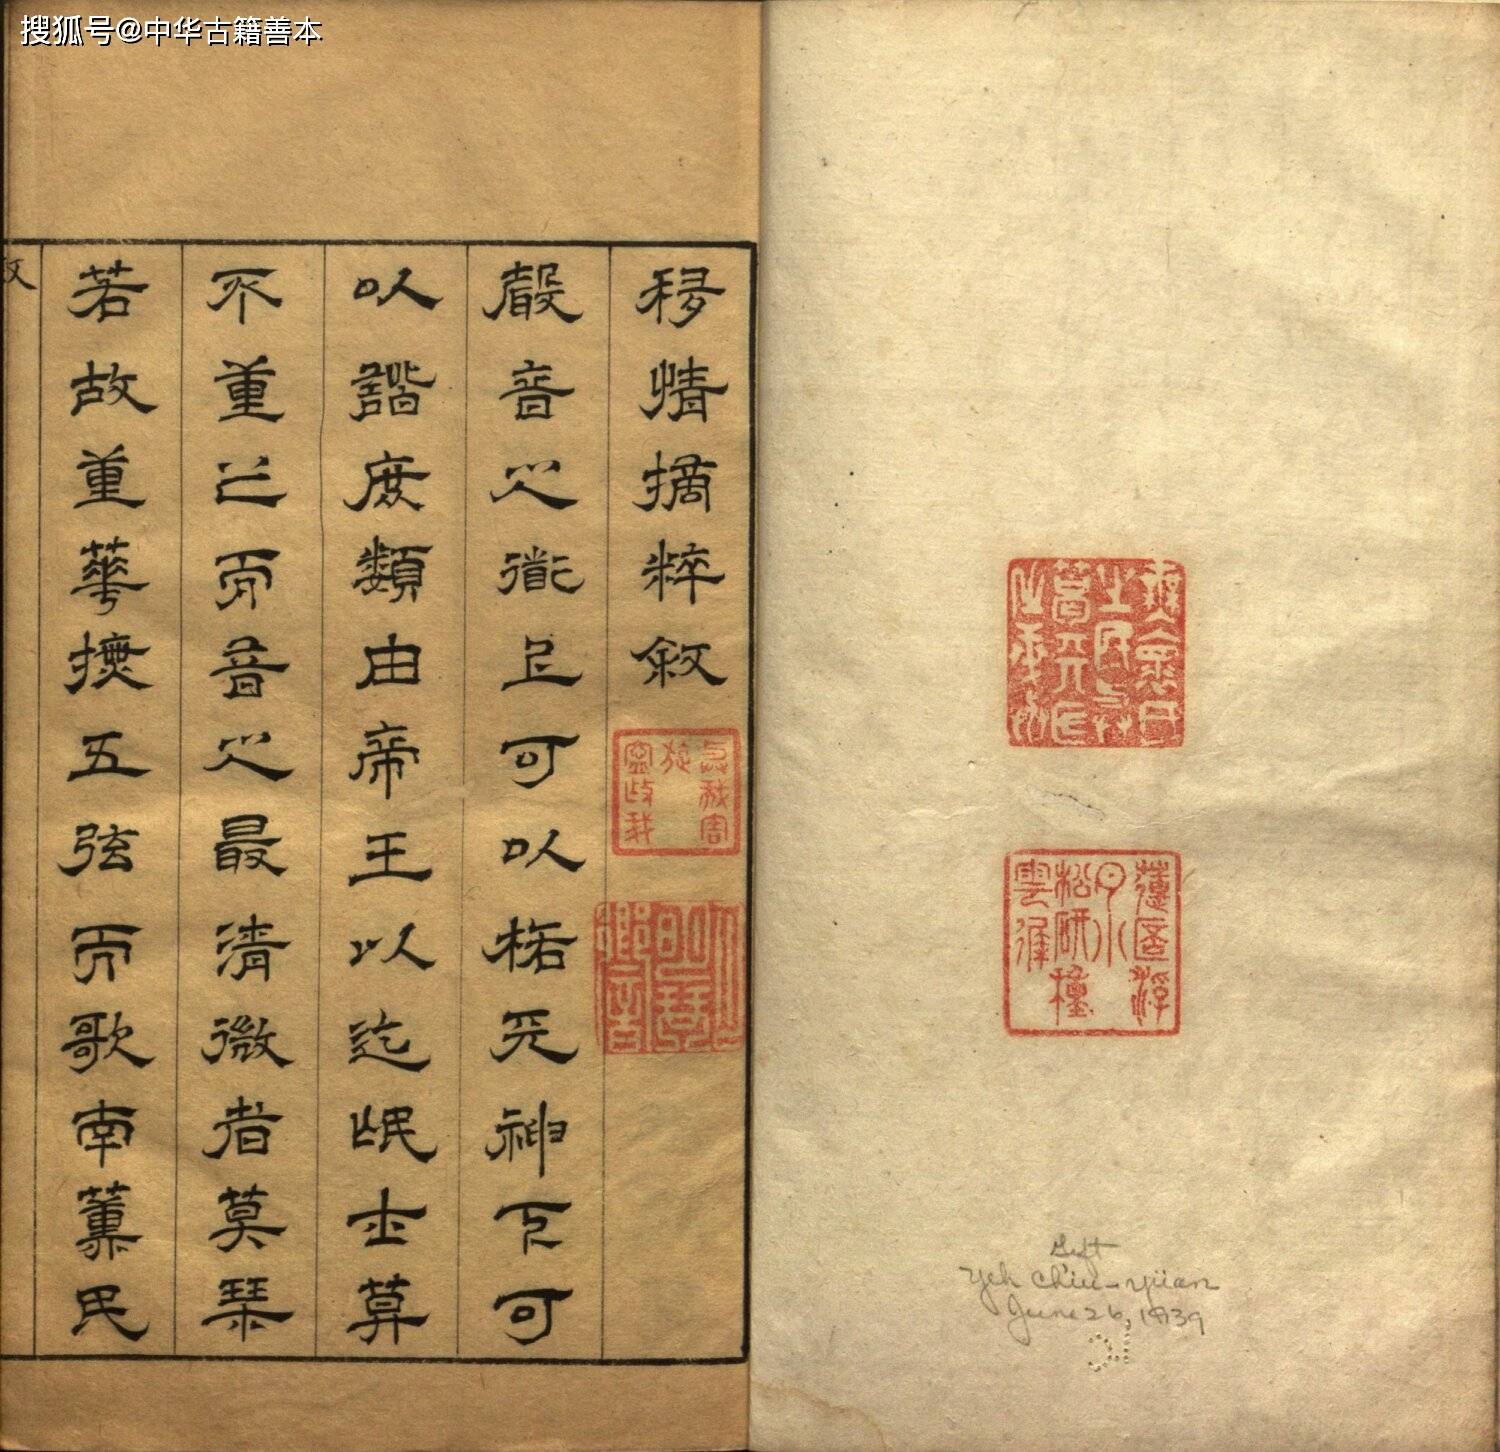 搜狐号@中华古籍善本
移情摘粹敘
聲音之道上可以格天神下可
以諧庶類由帝王以迄氓士莫
不重之而音之最清微者莫琴
若故重華撫五弦而歌南薰民
Gift
Yeh Chiu-yüan
June 26, 1939